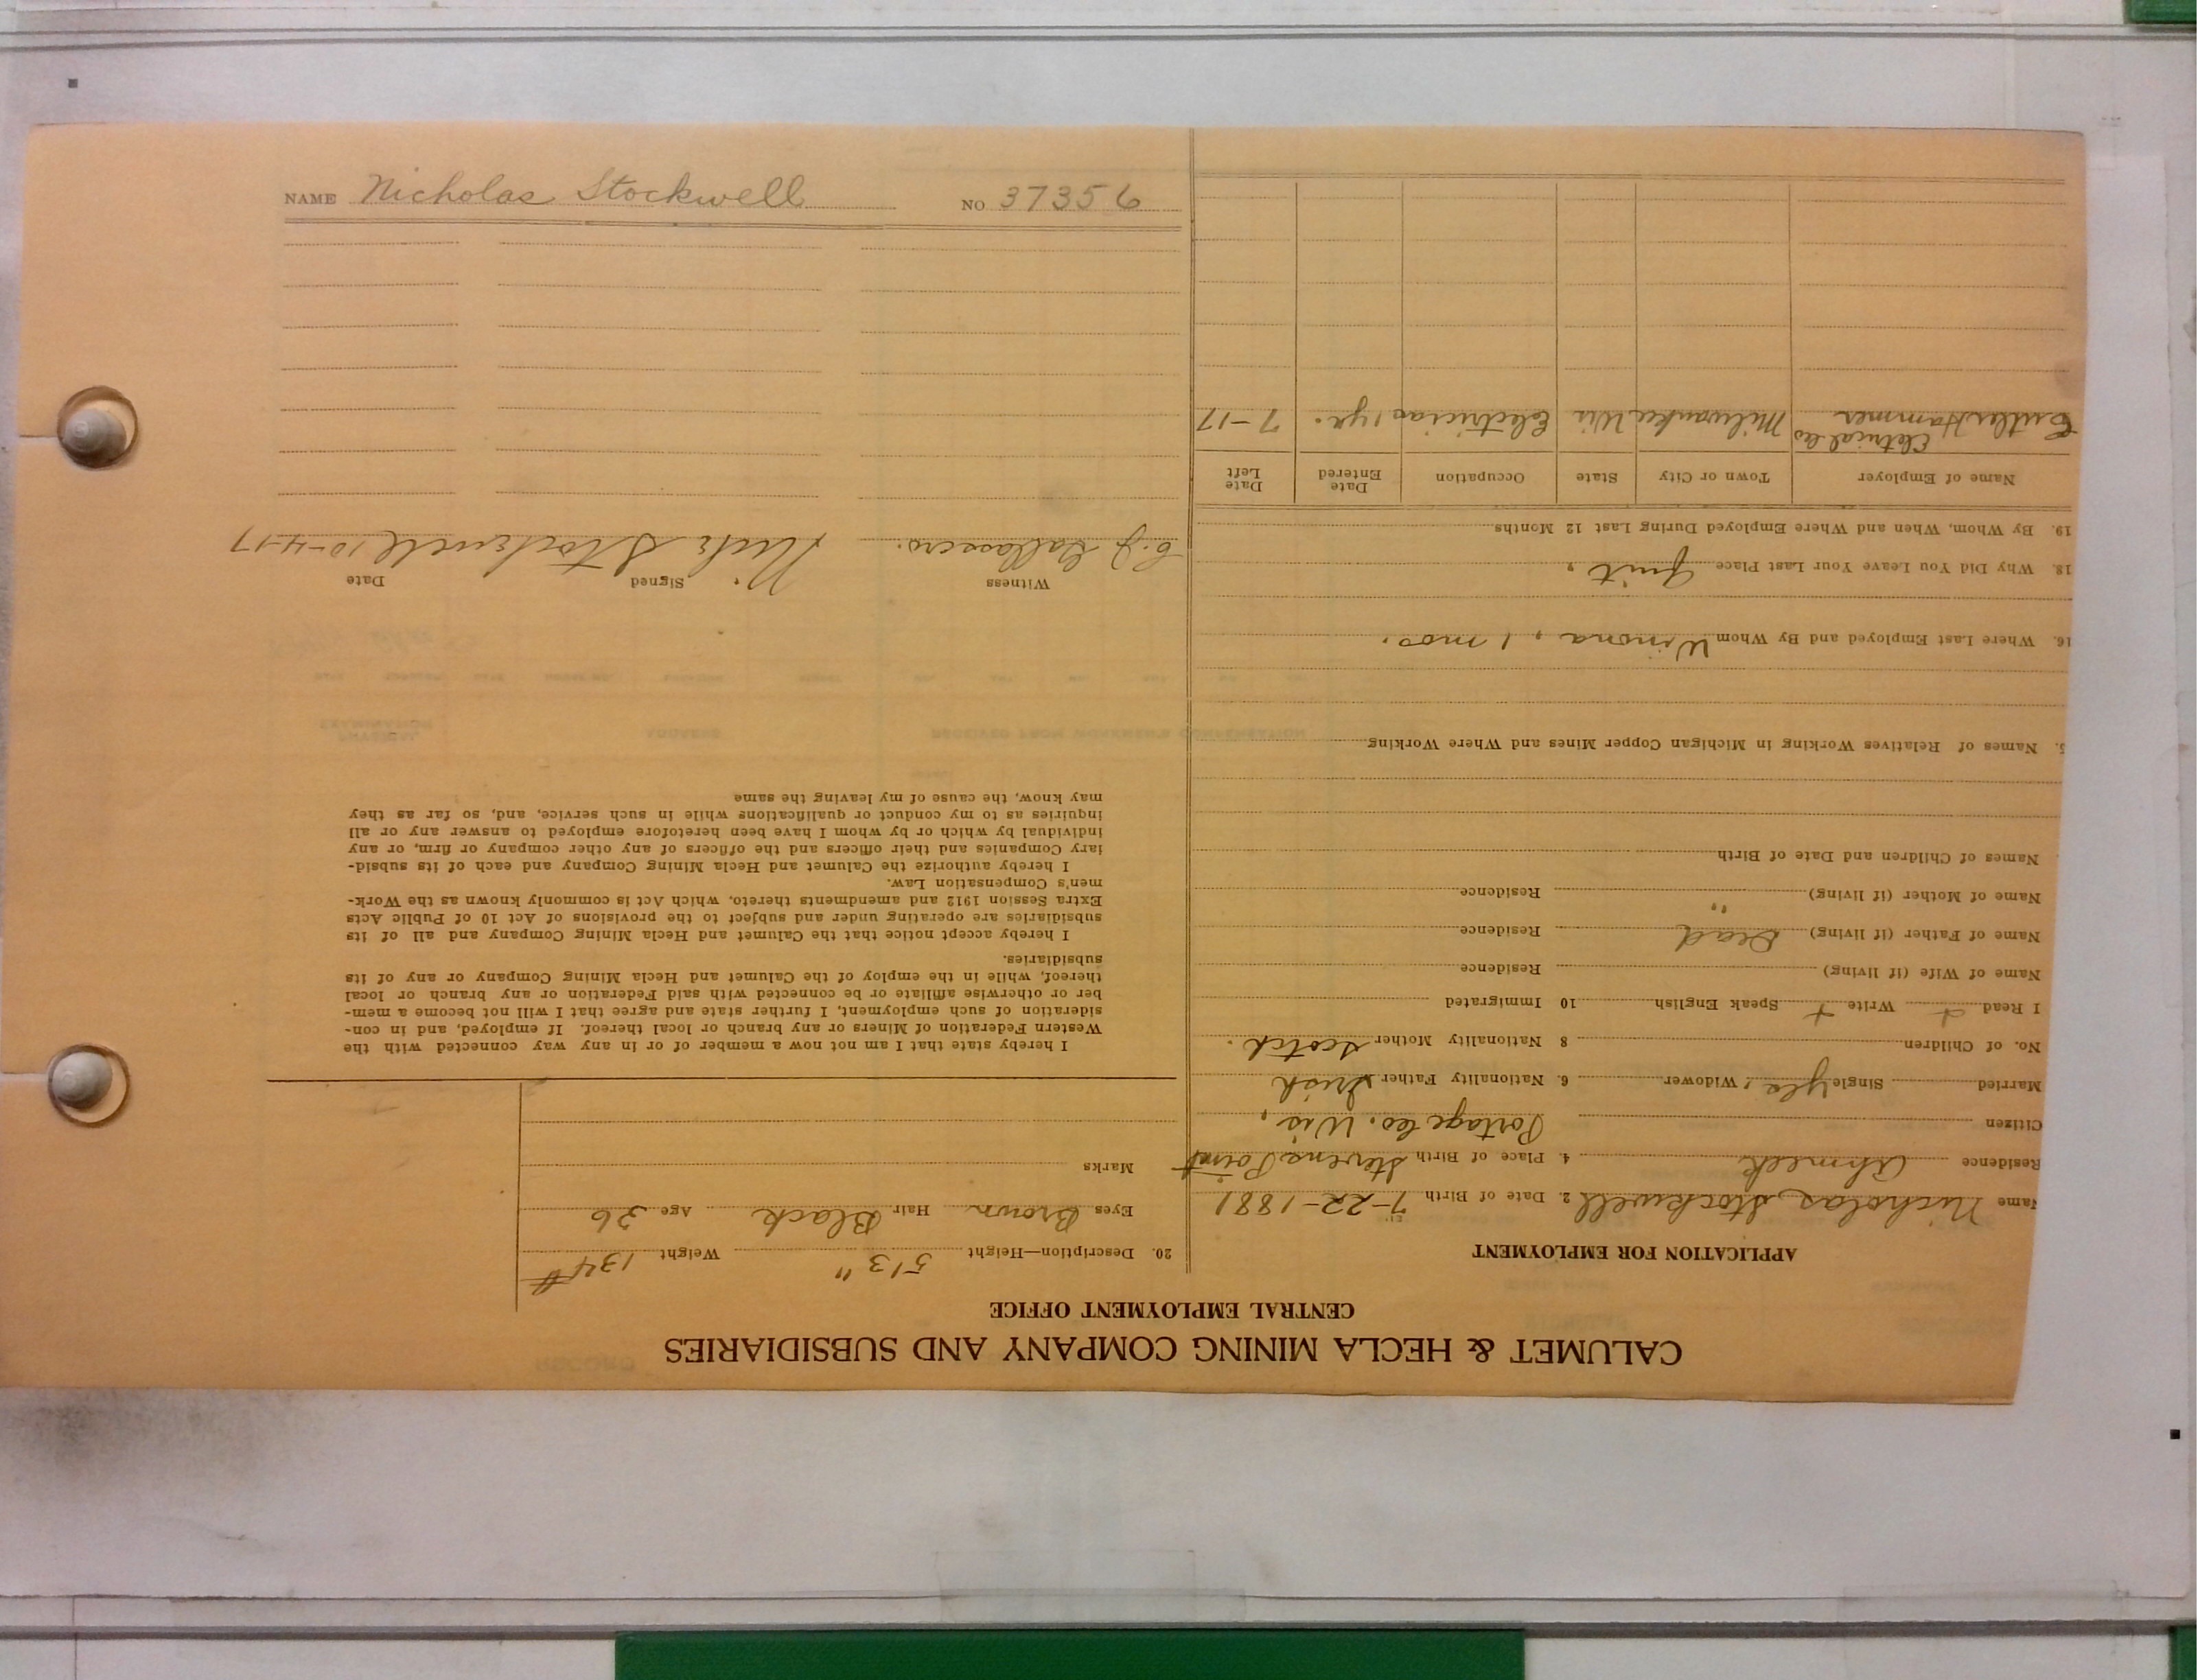 NAME Nicholas Stockwell NO 37356
CALUMET & HECLA MINING COMPANY AND SUBSIDIARIES
CENTRAL EMPLOYMENT OFFICE
APPLICATION FOR EMPLOYMENT
Name Nicholas Stockwell 2. Date of Birth 7-22-1881
Residence Ahmeek 4. Place of Birth Stevens Point
Citizen Portage Co. Wis,
Married Single yes, Widower 6. Nationality Father Irish
No. of Children 8 Nationality Mother Scotch.
I Read + Write + Speak English 10 Immigrated
Name of Wife (if living) Residence
Name of Father (if living) Dead Residence
Name of Mother (if living) " Residence
Names of Children and Date of Birth
5. Names of Relatives Working in Michigan Copper Mines and Where Working
16. Where Last Employed and By Whom Winona, 1 mos.
18. Why Did You Leave Your Last Place Quit,
19. By Whom, When and Where Employed During Last 12 Months
Name of Employer Town or City State Occupation Date Entered Date Left
Cutler Hammer Eletrical Co Milwaukee Wis Electrician 1 yr. 7-17
20. Description—Height 5'3" Weight 134#
Eyes Brown Hair Black Age 36
Marks
I hereby state that I am not now a member of or in any way connected with the
Western Federation of Miners or any branch or local thereof. If employed, and in con-
sideration of such employment, I further state and agree that I will not become a mem-
ber or otherwise affiliate or be connected with said Federation or any branch or local
thereof, while in the employ of the Calumet and Hecla Mining Company or any of its
subsidiaries.
I hereby accept notice that the Calumet and Hecla Mining Company and all of its
subsidiaries are operating under and subject to the provisions of Act 10 of Public Acts
Extra Session 1912 and amendments thereto, which Act is commonly known as the Work-
men's Compensation Law.
I hereby authorize the Calumet and Hecla Mining Company and each of its subsid-
iary Companies and their officers and the officers of any other company or firm, or any
individual by which or by whom I have been heretofore employed to answer any or all
inquiries as to my conduct or qualifications while in such service, and, so far as they
may know, the cause of my leaving the same
Witness Signed Date
Nick Stockwell 10-4-17